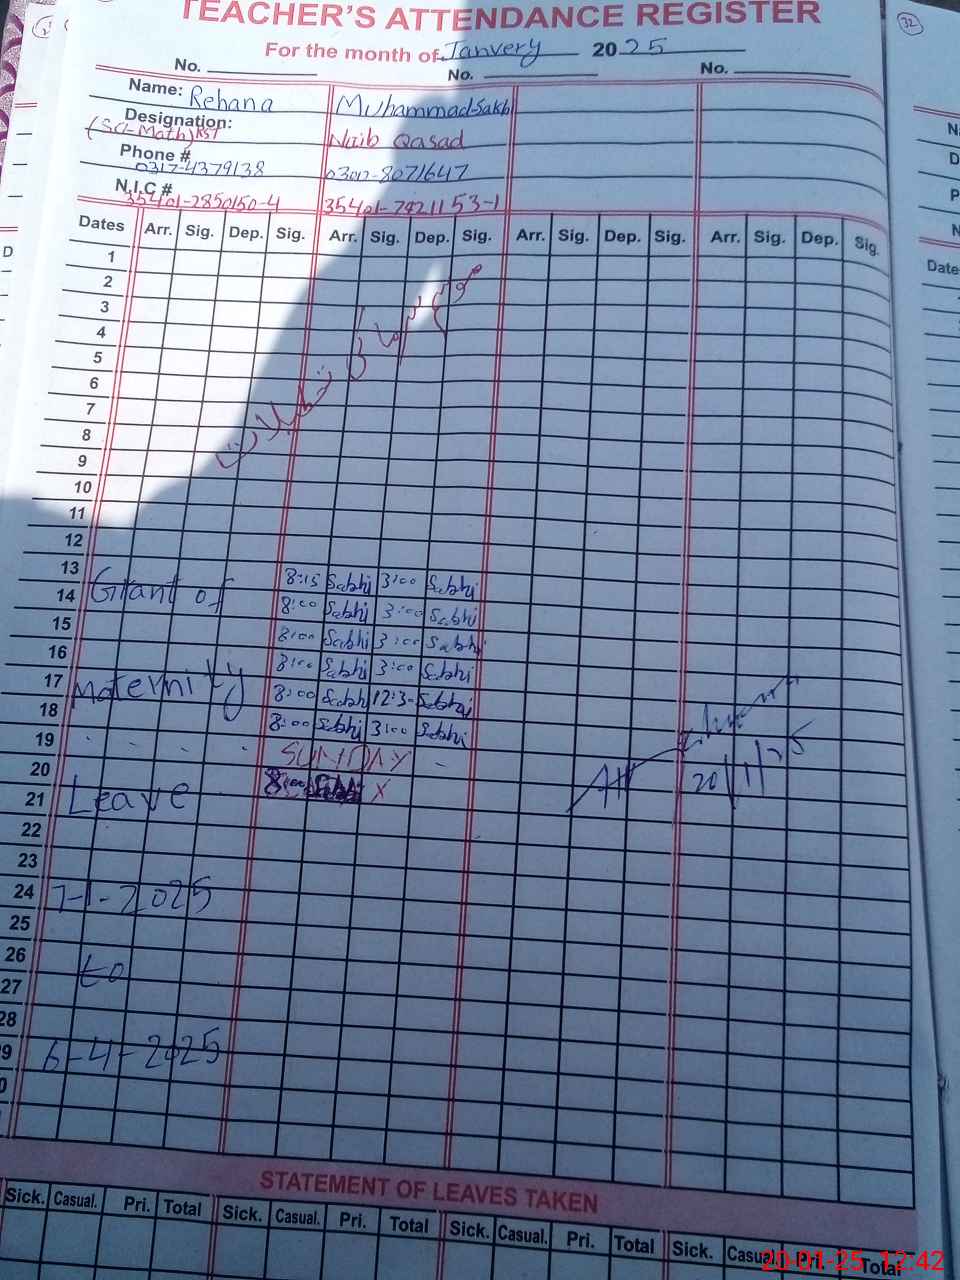 TEACHER'S ATTENDANCE REGISTER
For the month of Janvery 2025
No. No. No.
Name: Rehana Muhammad Sakhi
Designation: (Sci-Math) EST Naib Qasad
Phone # 0317-4379138 0300-8071647
N.I.C # 35401-2850150-4 35401-7421153-1
Dates Arr. Sig. Dep. Sig. Arr. Sig. Dep. Sig. Arr. Sig. Dep. Sig. Arr. Sig. Dep. Sig.
1
2
3
4
5
6
7
8
9
10
11
12
موسم سرما کی تعطیلات
13 8:15 Sabhi 3:00 Sabhi
14 Grant of 8:00 Sabhi 3:00 Sabhi
15 8:00 Sabhi 3:00 Sabhi
16 8:00 Sabhi 3:00 Sabhi
17 Maternity 8:00 Sabhi 12:3- Sabhi
18 8:00 Sabhi 3:00 Sabhi
19 SUNDAY
20 8:00 Sabhi X
21 Leave
20/1/25
22
23
24 7-1-2025
25
26
27 to
28
29 6-4-2025
STATEMENT OF LEAVES TAKEN
Sick. Casual. Pri. Total Sick. Casual. Pri. Total Sick. Casual. Pri. Total Sick. Casual. Pri. Total
20-01-25 12:42
32
Date